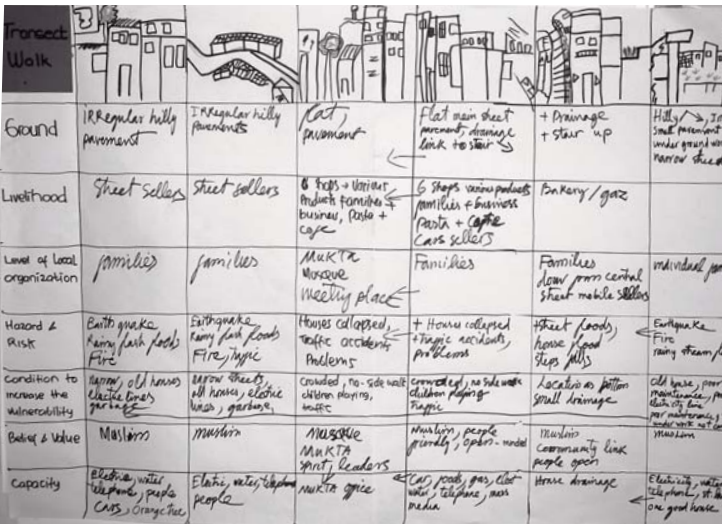 Transect
Walk
Ground
IRRegular hilly
pavement
IRRegular hilly
Pavements
flat,
pavement
Flat main sheet
pavement, drainage
link to stair
+ Drainage
+ stair up
Hilly
small pavement
under ground
narrow
Livelihood
Street sellers
street sellers
6 shops + Various
Products families +
business, Pasta +
cafe
6 shops various products
families + business
pasta + Cafe
Cars sellers
Bakery / gaz
Level of Local
organization
families
families
MuKTA
Mosque
meeting place
Families
Families
down from central
street mobile sellers
individual
Hazard &
Risk
Earth quake
Rainy flash floods
Fire
Earthquake
Rainy flash floods
Fire,
Houses collapsed,
Traffic accidents
Problems
+ Houses collapsed
+ Traffic accidents,
problems
+ street floods,
house flood
steps falls
Earthquake
Fire
rainy
Condition to
increase the
vulnerability
narrow, old houses
electric lines
garbage
narrow streets,
old houses, electric
lines, garbage,
Crowded, no-side walk
children playing,
traffic
crowded, no side walk
children playing
Traffic
Location as bottom
small drainage
old house, poor
maintenance,
electricity line
poor maintenance,
under work not
Belief & Value
Muslims
muslim
mosque
MuKTA
spirit, leaders
Muslim, people
friendly, open-minded
muslim
Community link
people open
muslim
Capacity
Electric, water
telephone, people
Cars, Orange tree
Electric, water, telephone
people
MuKTA office
Car, foods, gas, elect
water, telephone, mass
media
House drainage
Electricity, water
telephone,
one good house